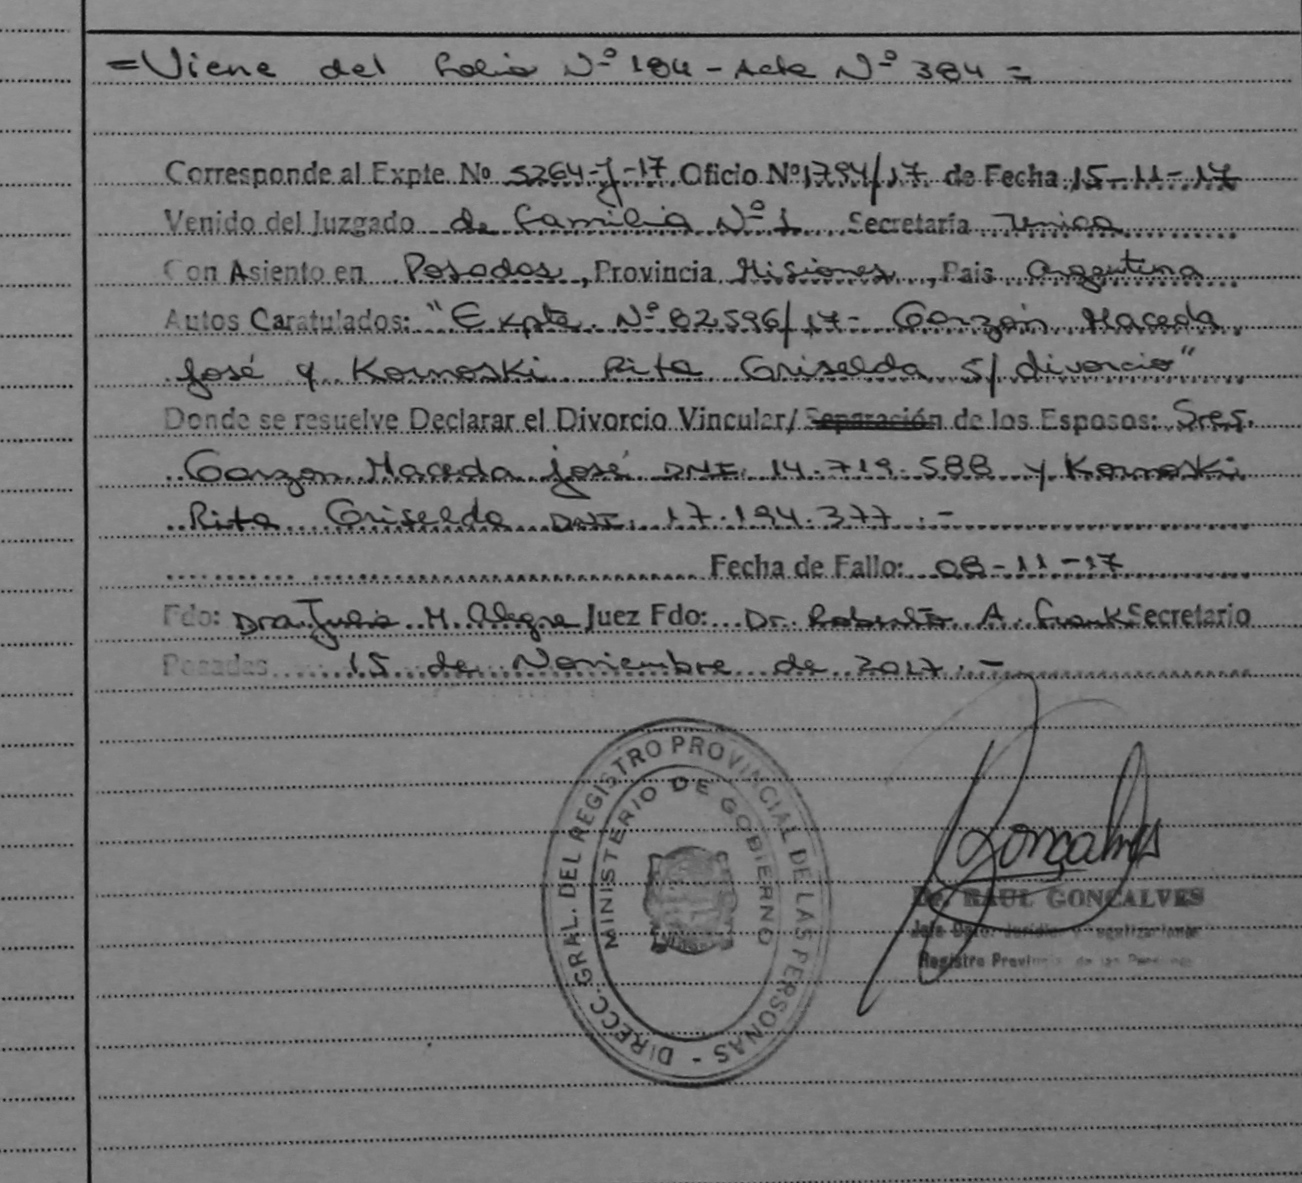 =Viene del Folio Nº 184 - Acta Nº 384 =
Corresponde al Expte. Nº 5264-J-17 Oficio Nº 1794/17 de Fecha 15-11-17
Venido del Juzgado de Familia Nº 1 Secretaría Unica
Con Asiento en Posadas, Provincia Misiones, Pais Argentina
Autos Caratulados: "Expte. Nº 82596/17- Garzón Maceda
José y Kornoski Rita Griselda S/ divorcio"
Donde se resuelve Declarar el Divorcio Vincular/ Separación de los Esposos: Sres.
Garzon Maceda José DNI. 14.719.588 y Kornoski
Rita Griselda DNI. 17.194.377.-
Fecha de Fallo: 08-11-17
Fdo: Dra. Julia M. Alegre Juez Fdo: Dr. Roberto A. Frank Secretario
Posadas 15 de Noviembre de 2017.-
DIRECC. GRAL. DEL REGISTRO PROVINCIAL DE LAS PERSONAS -
MINISTERIO DE GOBIERNO
Gonçalves
Dr. RAUL GONCALVES
Jefe Dpto. Jurídico y
Registro Provincial de las Personas